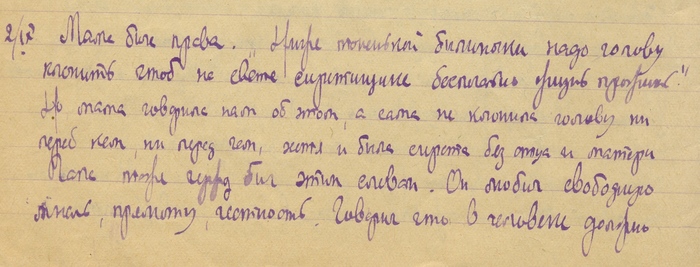 2/IX Мама была права. „Ниже тоненькой былиночки надо голову
клонить чтоб на свете сиротиночке бесплатно жизнь прожить."
Но мама говорила нам об этом, а сама не клонила голову ни
перед кем, ни перед чем, хотя и была сирота без отца и матери
Папа тоже чужд был этим словам. Он любил свободную
мысль, прямоту, честность. Говорил что в человеке должно